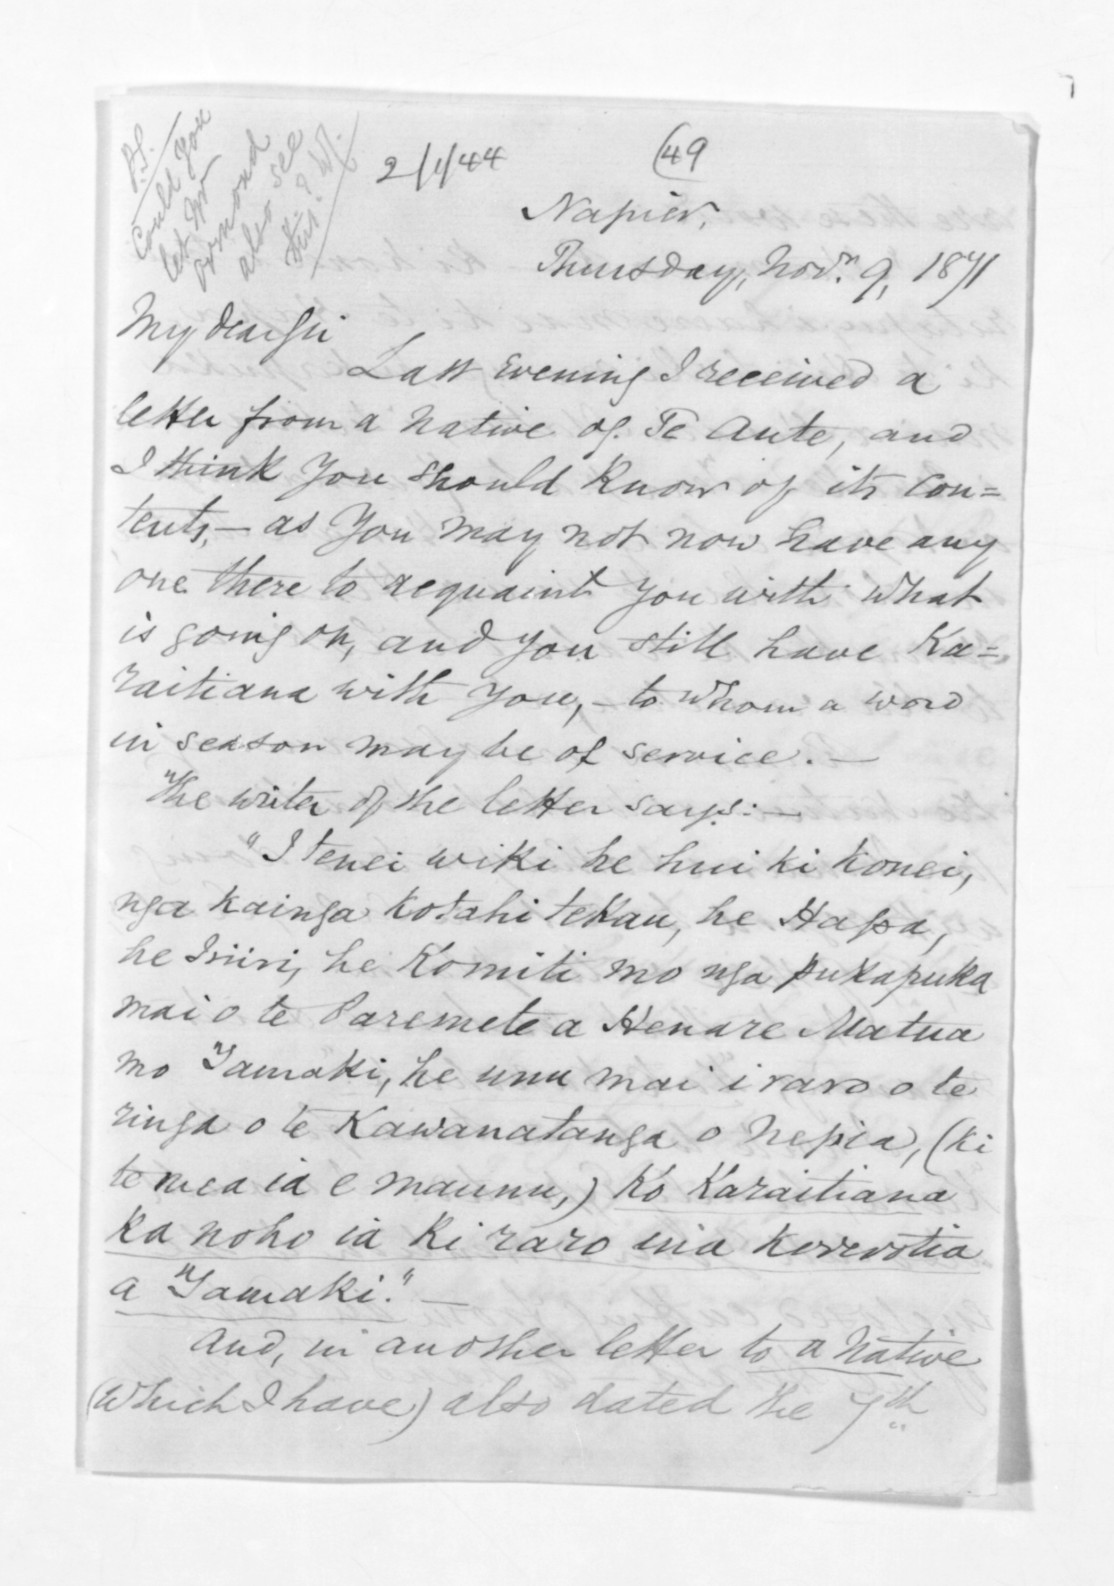 P.S.
Could You
let Mr
Ormond
also see
this?
2/1/44
(49
Napier,
Thursday, Novr. 9, 1871
My dear Sir
Last Evening I received a
letter from a Native of Te Aute, and
I think You should Know of its con=
tents,— as You may not now have any
one there to acquaint You with what
is going on, and You still have Ka=
raitiana with You,—to whom a word
in season may be of service.—
The writer of the letter says:—
"I tenei wiki he hui ki konei,
nga kainga kotahi tekau, he Hapa,
he Iriiri, he Komiti mo nga pukapuka
mai o te Paremete a Henare Matua
mo Tamaki, he unu mai i raro o te
ringa o te Kawanatanga o Nepia, (ki
te mea ia e maunu,) Ko Karaitiana
ka noho ia ki raro inia korerotia
a Tamaki."—
And, in another letter to a Native
(which I have) also dated the 7th